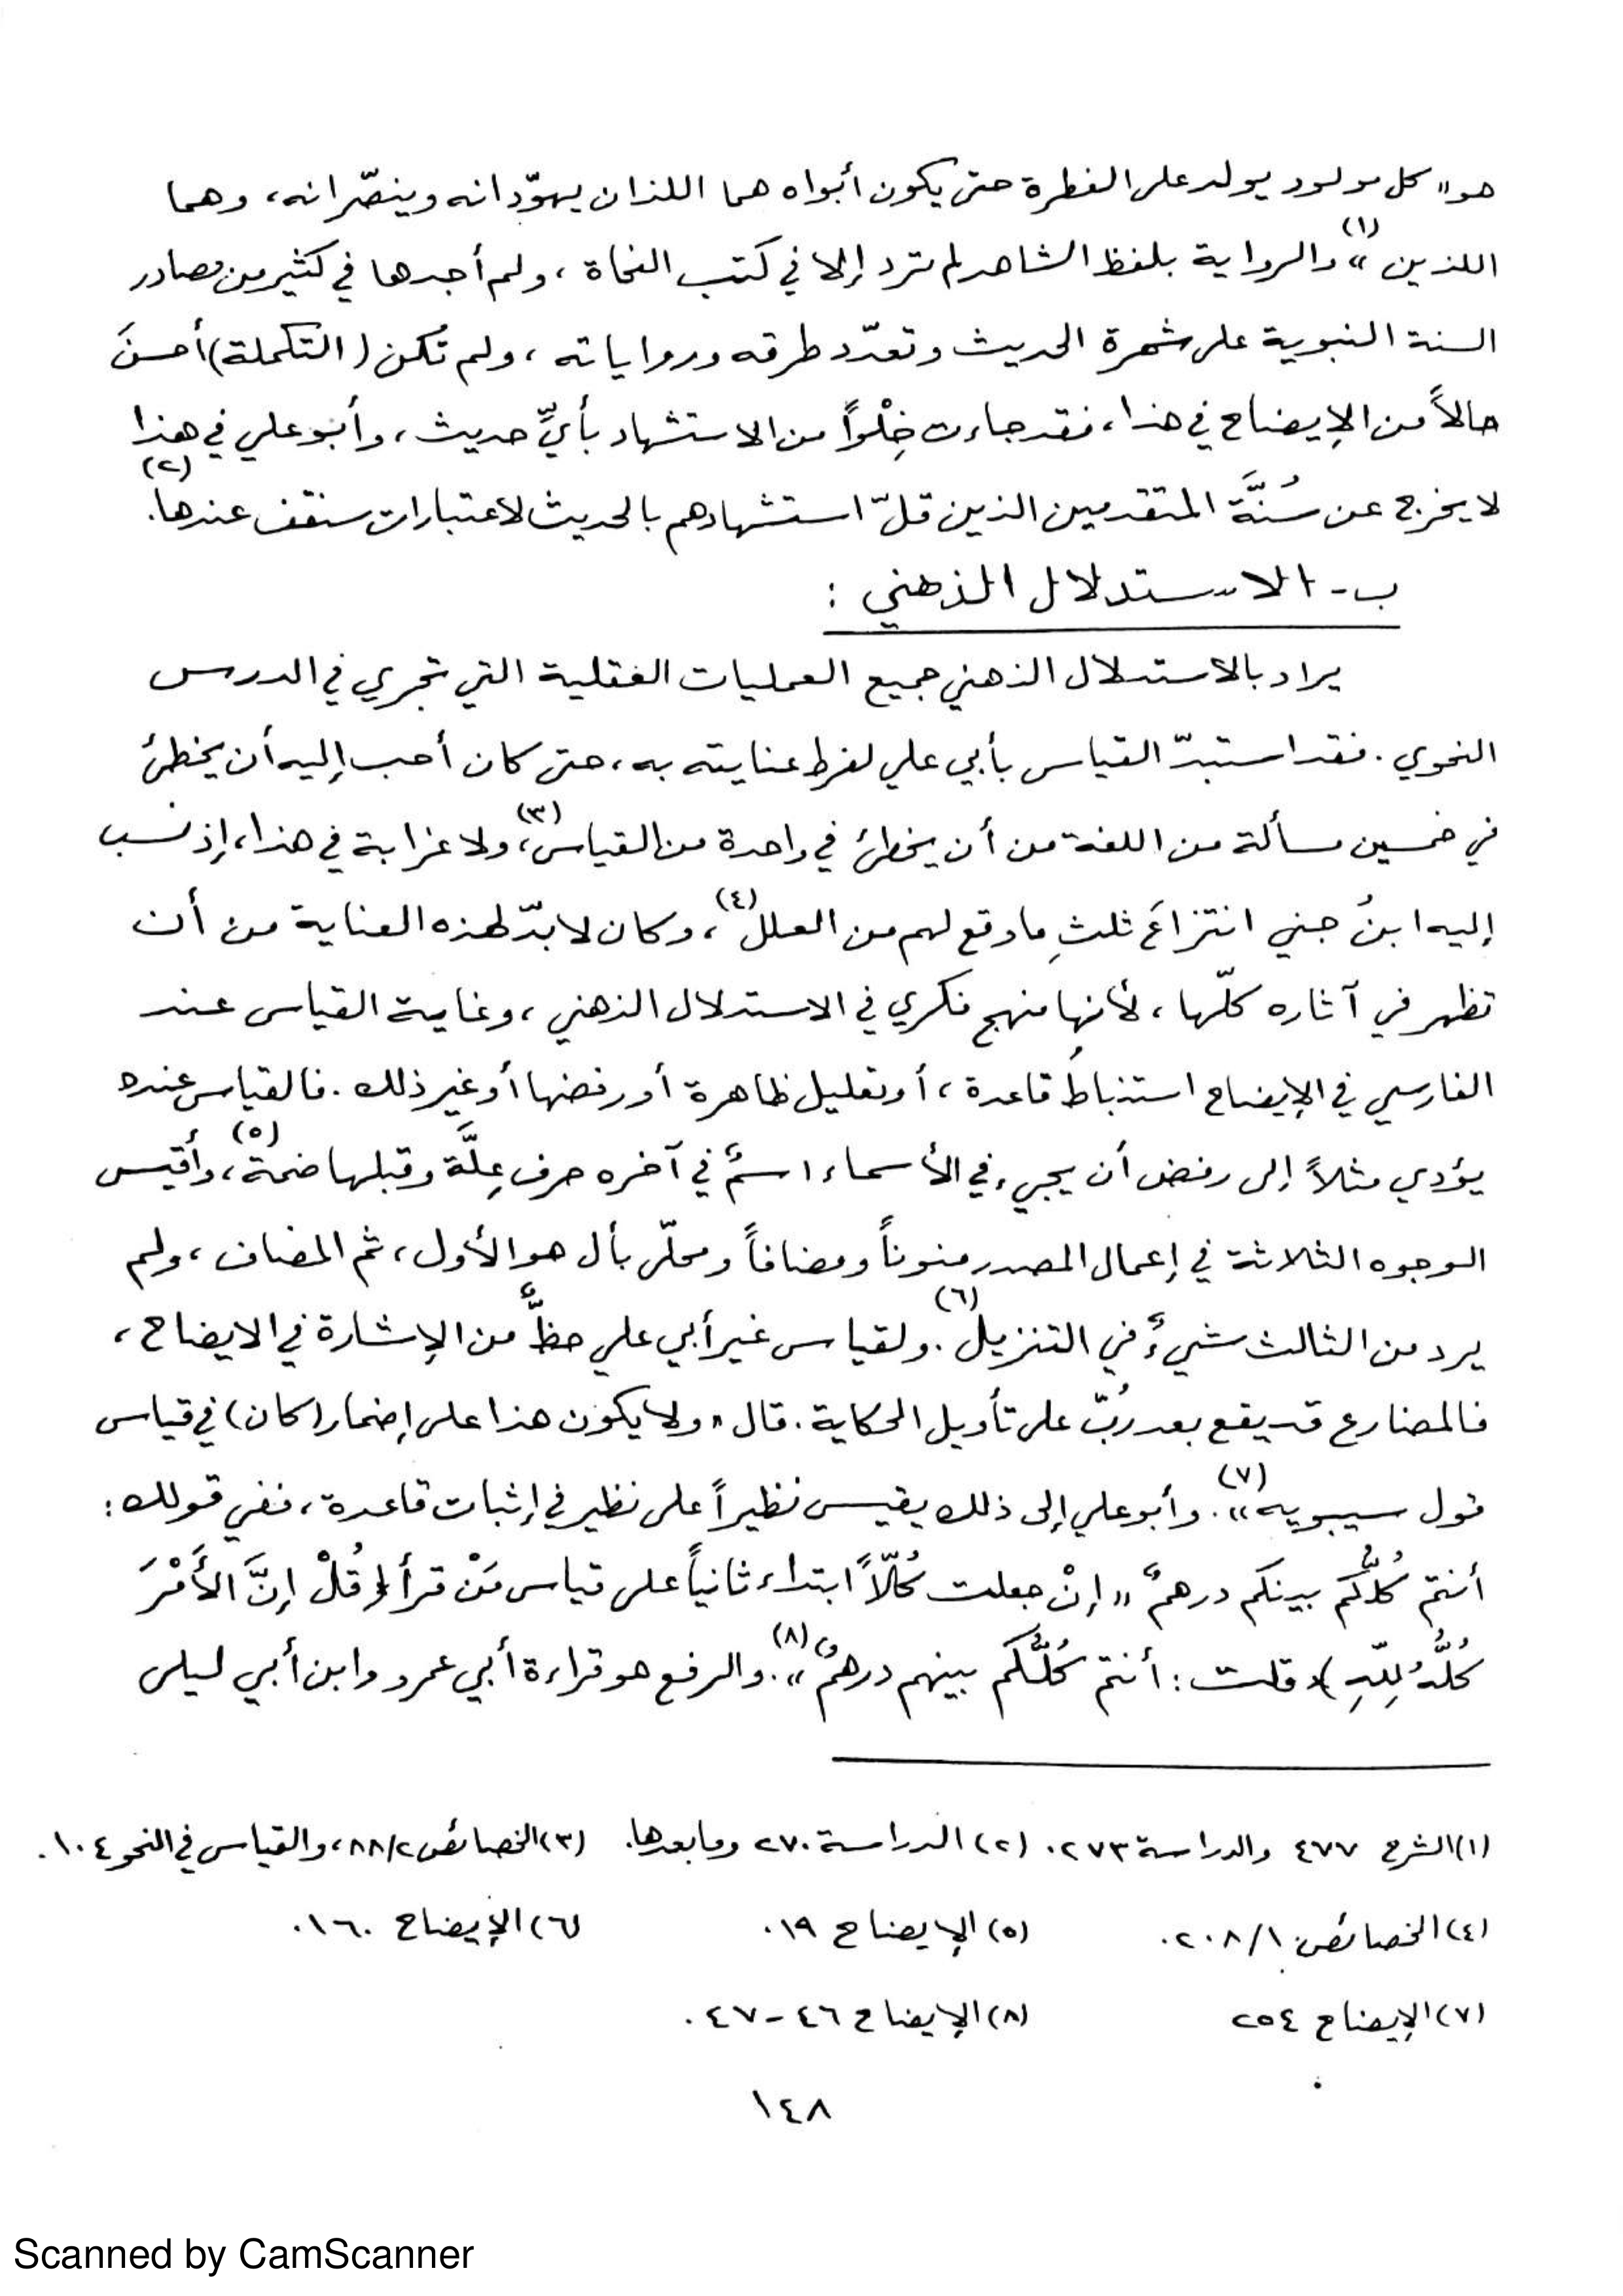 هو « كل مولود يولد على الفطرة حتى يكون أبواه هما اللذان يهوّدانه وينصّرانه، وهما
اللذين »(١) والرواية بلفظ الشاهد لم ترد إلا في كتب النحاة ، ولم أجدها في كثير من مصادر
السنة النبوية على شهرة الحديث وتعدّد طرقه ورواياته ، ولم تكن ( التكملة ) أحسنَ
حالاً من الإيضاح في هذا ، فقد جاءت خِلْواً من الاستشهاد بأيِّ حديث ، وأبو علي في هذا
لا يخرج عن سُنَّة المتقدمين الذين قلّ استشهادهم بالحديث لاعتبارات سنقف عندها(٢).
ب - الاستدلال الذهني :
يراد بالاستدلال الذهني جميع العمليات العقلية التي تجري في الدرس
النحوي . فقد استبدّ القياس بأبي علي لفرط عنايته به ، حتى كان أحب إليه أن يخطئ
في خمسين مسألة من اللغة من أن يخطئ في واحدة من القياس(٣)، ولا غرابة في هذا ، إذ نسب
إليه ابنُ جني انتزاعَ ثلثِ ما وقع لهم من العلل(٤)، وكان لا بدّ لهذه العناية من أن
تظهر في آثاره كلّها ، لأنها منهج فكري في الاستدلال الذهني ، وغاية القياس عند
الفارسي في الإيضاح استنباطُ قاعدة ، أو تعليل ظاهرة أو رفضها أو غير ذلك . فالقياس عنده
يؤدي مثلاً إلى رفض أن يجيء في الأسماء اسمٌ في آخره حرف عِلَّة وقبلها ضمة(٥)، وأقيس
الوجوه الثلاثة في إعمال المصدر منوناً ومضافاً ومحلّى بأل هو الأول ، ثم المضاف ، ولم
يرد من الثالث شيءٌ في التنزيل(٦). ولقياس غير أبي علي حظٌّ من الإشارة في الايضاح ،
فالمضارع قد يقع بعد رُبّ على تأويل الحكاية . قال « ولا يكون هذا على إضمار ( كان ) في قياس
قول سيبويه »(٧). وأبو علي إلى ذلك يقيس نظيراً على نظير في إثبات قاعدة ، ففي قولك :
أنتم كُلُّكُم بينكم درهمٌ « إنْ جعلت كُلّاً ابتداء ثانياً على قياس مَنْ قرأ ﴿ قُلْ إنَّ الأَمْرَ
كُلُّهُ لِلّهِ ﴾ قلت : أنتم كُلُّكم بينهم درهمٌ »(٨). والرفع هو قراءة أبي عمرو وابن أبي ليلى
(١) الشرح ٤٧٧ والدراسة ٢٧٣. (٢) الدراسة ٢٧٠ وما بعدها. (٣) الخصائص ٨٨/٢، والقياس في النحو ١٠٤.
(٤) الخصائص ٢٠٨/١. (٥) الإيضاح ١٩. (٦) الإيضاح ١٦٠.
(٧) الإيضاح ٢٥٤ (٨) الإيضاح ٤٦ - ٤٧.
١٤٨
Scanned by CamScanner